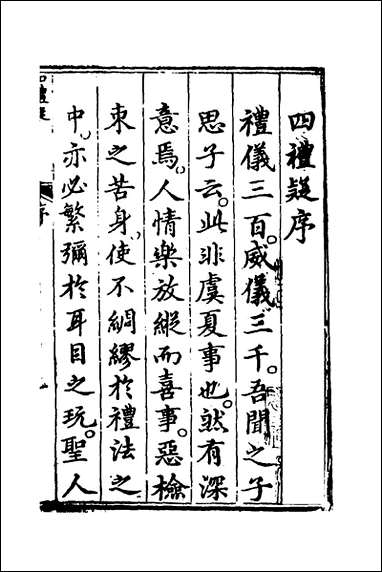 四禮疑序
禮儀三百。威儀三千。吾聞之子
思子云。此非虞夏事也。然有深
意焉。人情樂放縱而喜事。惡檢
束之苦身。使不綢繆於禮法之
中。亦必繁彌於耳目之玩。聖人